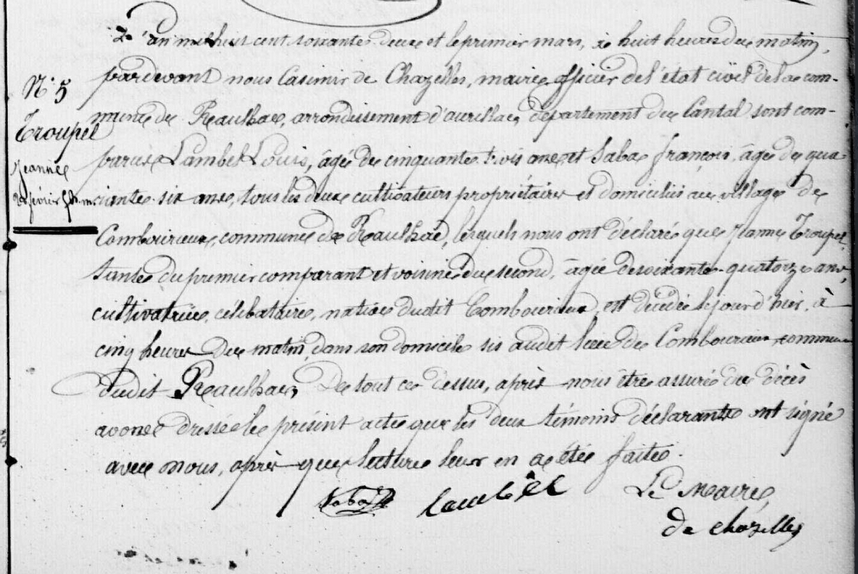 L'an mil huit cent soixante deux et le premier mars, à huit heures du matin,
pardevant nous Casimir de Chazelles, maire, officier de l'état civil de la com-
N°. 5
mune de Raulhac, arrondissement d'aurillac, département du Cantal sont com-
Troupel
parus Lambel Louis, âgé de cinquante trois ans, et Sabas françois, âgé de qua-
Jeanne
rante-six ans, tous les deux cultivateurs propriétaires et domiciliés au village de
Combourieux, commune de Raulhac, lesquels nous ont déclaré que Jeanne Troupel
tante du premier comparant et voisine du second, âgée de soixante-quatorze ans,
cultivatrice, célibataire, native dudit Combourieux, est décédée le jour d'hier, à
cinq heures du matin, dans son domicile sis audit lieu de Combourieux commune
dudit Raulhac, De tout ce dessus, après nous être assuré du décès
avons dressé le présent acte que les deux témoins déclarants ont signé
avec nous, après que lecture leur en a été faite.
Sabas Lambel Le Maire,
de Chazelles